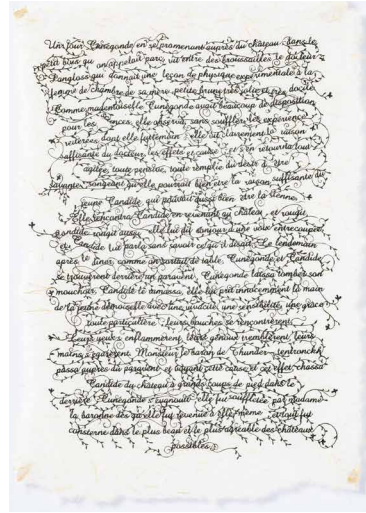 Un jour Cunégonde en se promenant auprès du château dans le
petit bois qu on appelait parc vit entre des broussailles le docteur
Pangloss qui donnait une leçon de physique expérimentale à la
femme de chambre de sa mère petite brune très jolie et très docile
Comme mademoiselle Cunégonde avait beaucoup de disposition
pour les sciences, elle observa, sans souffler, les expériences
réitérées dont elle fut témoin elle vit clairement la raison
suffisante du docteur, les effets et causes et s en retourna tout
agitée, toute pensive, toute remplie du désir d être
savante, songeant qu elle pourrait bien être la raison suffisante du
jeune Candide, qui pouvait aussi bien être la sienne
Elle rencontra Candide en revenant au château, et rougit
Candide rougit aussi elle lui dit bonjour d une voix entrecoupée
et Candide lui parla sans savoir ce qu il disait. Le lendemain
après le dîner, comme on sortait de table, Cunégonde et Candide
se trouvèrent derrière un paravent, Cunégonde laissa tomber son
mouchoir, Candide le ramassa, elle lui prit innocemment la main
de la jeune demoiselle avec une vivacité, une sensibilité, une grâce
toute particulière leurs bouches se rencontrèrent
Leurs yeux s enflammèrent, leurs genoux tremblèrent, leurs
mains s égarèrent. Monsieur le baron de Thunder-ten-tronckh
passa auprès du paravent et voyant cette cause et cet effet chassa
Candide du château à grands coups de pied dans le
derrière Cunégonde s évanouit elle fut souffletée par madame
la baronne dès qu elle fut revenue à elle même et tout fut
consterné dans le plus beau et le plus agréable des châteaux
possibles